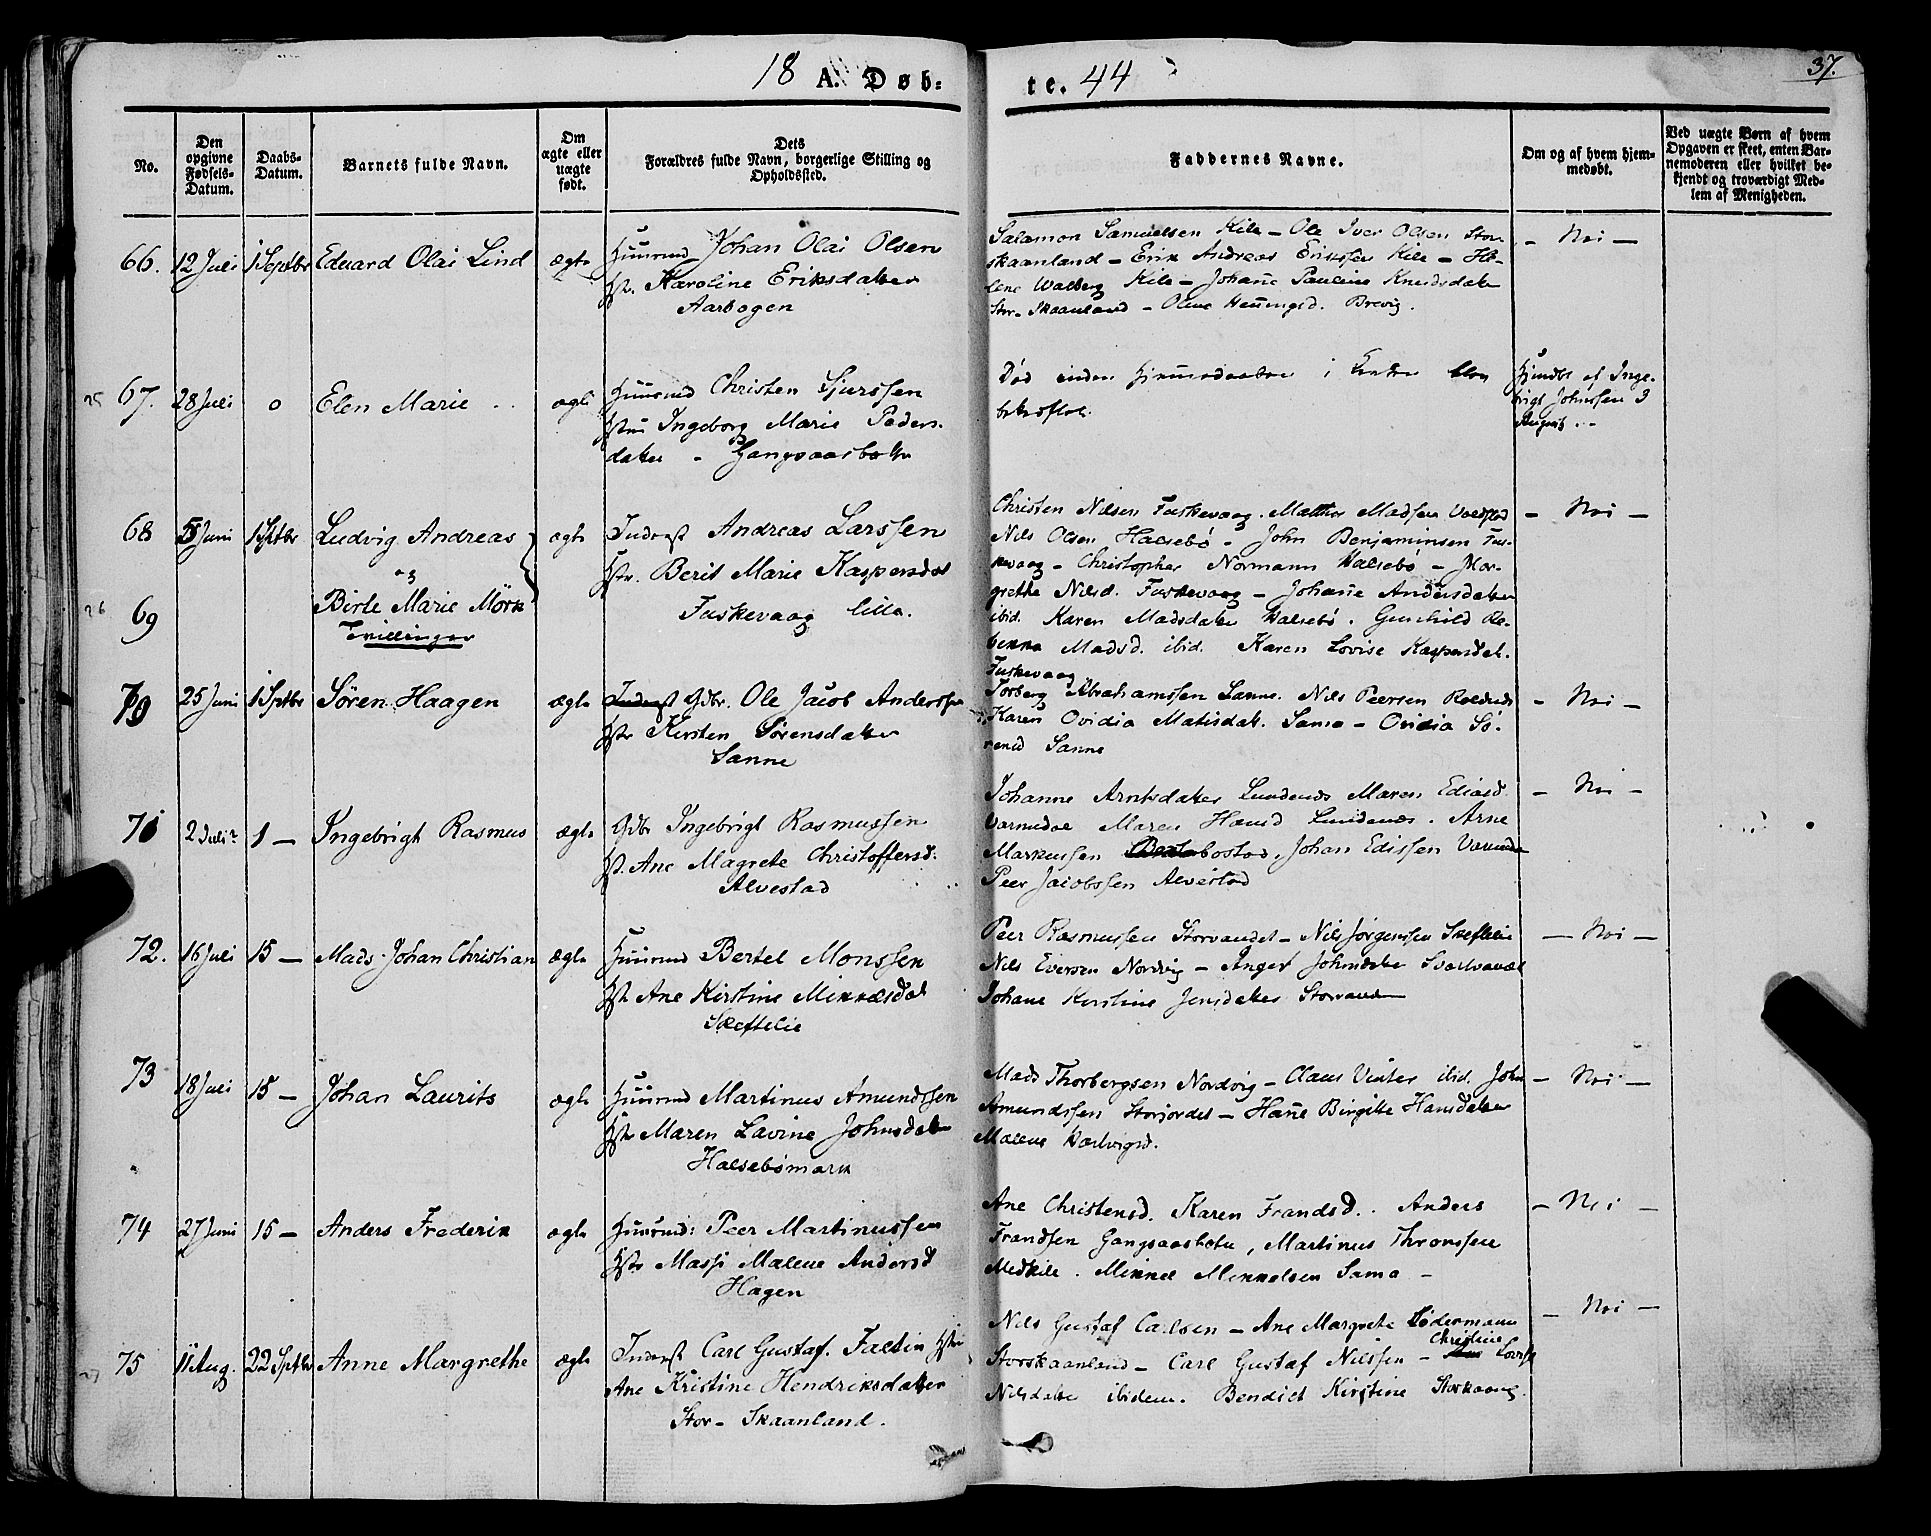 18 A. Døb:
te. 44
37.
No.
Den opgivne Fødsels-Datum.
Daabs-Datum.
Barnets fulde Navn.
Om ægte eller uægte født.
Dets Forældres fulde Navn, borgerlige Stilling og Opholdssted.
Faddernes Navne.
Om og af hvem hjemmedøbt.
Ved uægte Børn af hvem Opgaven er skeet, enten Barnemoderen eller hvilket bekjendt og troværdigt Medlem af Menigheden.
66. 12 Juli 1 Septbr Eduard Olai Lind ægte
Huusmd Johan Olai Olsen
Hstr. Karoline Eriksdatter
Aarbogen
Salamon Samuelsen Kile – Ole Iver Olsen Stor
skaanland – Erik Andreas Eriksen Kile – He-
lene Walberg Kile – Johañe Pauline Knudsdatter
Stor-Skaanland – Oline Heñingsd. Brevig.
– Nei –
67. 28 Juli o Elen Marie ægte
Huusmd Christen Sjurssen
Hstru Ingeborg Marie Peders-
datter – Gangsaasbotn
Død inden Hjemmedaaben i Kirken blev
bekræftet.
Hjmdbt af Inge-
brigt Johnssen 3
August
68 5 Juni 1 Sptbr Ludvig Andreas ægte
og
69 Birte Marie Mörk
Tvillinger
Inderst Andreas Larssen
Hstr. Berit Marie Kaspersdat
Fuskevaag lille.
Christen Nilsen Fuskevaag. Matthis Madsen
Nils Olsen Halsebö – John Benjaminsen Fus-
kevaag – Christopher Normann Halsebö – Mar-
grethe Nilsd. Fuskevaag – Johañe Andersdatter
ibid. Karen Madsdatter Halsebö. Gunhild Re-
bekka Madsd. ibid. Karen Lovise Kaspersdat.
Fuskevaag
– Nei –
70 25 Juni 1 Sptbr Sören Haagen ægte
Inderst Gdbr. Ole Jacob Anderssen
Hstr Kirsten Sörensdatter
Sanne
Torberg Abrahamssen Sanne. Nils Peersen
Karen Ovidia Matisdat. Sama – Ovidia Sö-
rensd Sanne
– Nei –
71 2 Juli 1 – Ingebrigt Rasmus ægte
Gdbr Ingebrigt Rasmussen
Hst. Ane Magrete Christoffersd.
Alvestad
Johanne Arntsdatter Lundenes Maren Ediasd
Maren Hansd Lundenes. Arne
Markussen bostad, Johan Edissen
Peer Jacobssen Alvestad
– Nei –
72. 16 Juli 15 – Mads Johan Christian ægte
Huusmd Bertel Monssen
Hstr Ane Kirstine Mikkelsdat
Skeftelie
Peer Rasmussen Storvandet – Nils Jörgenssen Skeftelie
Nils Eversen Nordvig – Anger Johnsdatter
Johane Kirstine Jensdatter Storvand
– Nei –
73 18 Juli 15 – Johan Laurits ægte
Huusmd Martinus Amundssen
Hstr Maren Lavine Johnsdatter
Halsebömark
Mads Thorbergsen Nordvig – Claus Vinter ibid. John
Amundssen Storjordet – Hañe Birgitte Hansdatter
Malene Hartvigsd.
– Nei –
74 27 Juni 15 – Anders Frederik ægte
Huusmd: Peer Martinussen
Hstr Massi Malene Andersd
Hagen
Ane Christensd. Karen Frandsd. Anders
Frandsen Gangsaasbotn, Martinus Thronssen
Medkile. Mikkel Mikkelsen Sama –
– Nei –
75 11 Aug. 22 Sptbr Anne Margrethe ægte
Inderst Carl Gustaf. Faltin Hstr
Ane Kristine Hendriksdatter
Stor-Skaanland.
Nils Gustaf Carlsen – Ane Margrete Södermann
Storskaanland – Carl Gustaf Nilssen – Christine Lovise
Nilsdatter ibidem. Bendict Kirstine
– Nei –